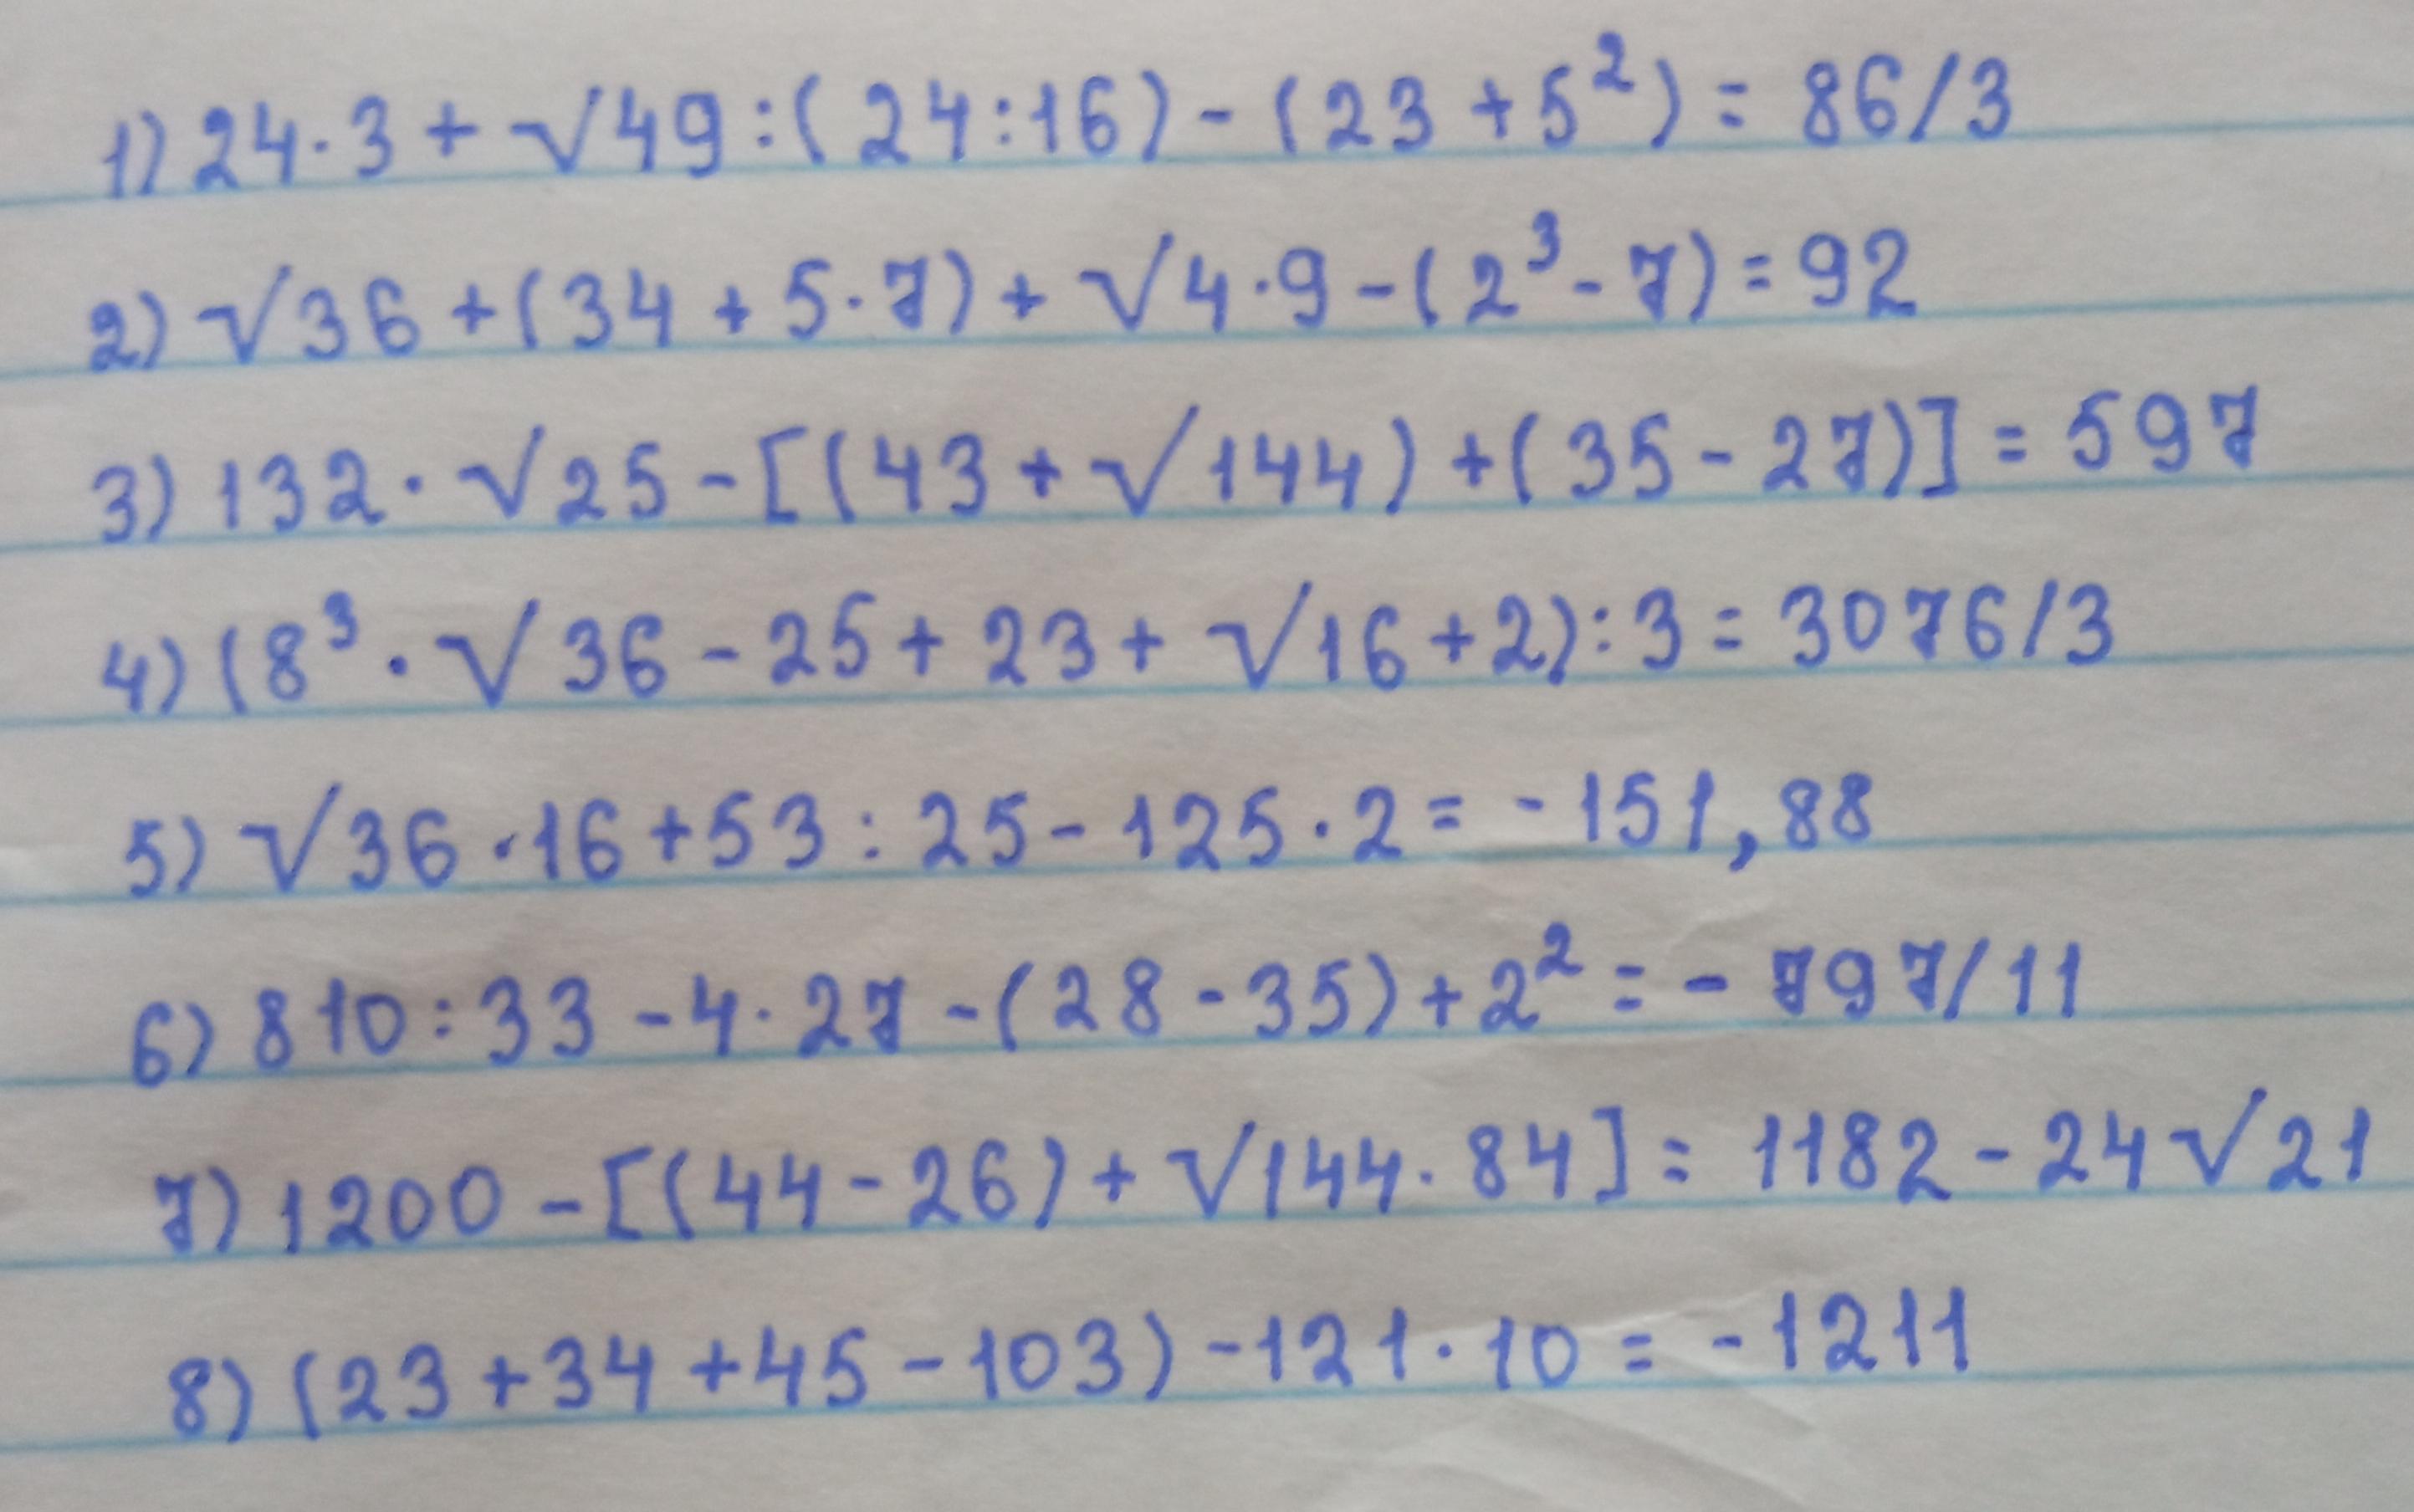 1) 24·3 + √49 : (24:16) - (23 + 5²) = 86/3
2) √36 + (34 + 5·7) + √4·9 - (2³ - 7) = 92
3) 132 · √25 - [(43 + √144) + (35 - 27)] = 597
4) (8³ · √36 - 25 + 23 + √16 + 2) : 3 = 3076/3
5) √36 · 16 + 53 : 25 - 125 · 2 = -151,88
6) 810 : 33 - 4 · 27 - (28 - 35) + 2² = - 797/11
7) 1200 - [(44 - 26) + √144 · 84] = 1182 - 24√21
8) (23 + 34 + 45 - 103) - 121 · 10 = -1211